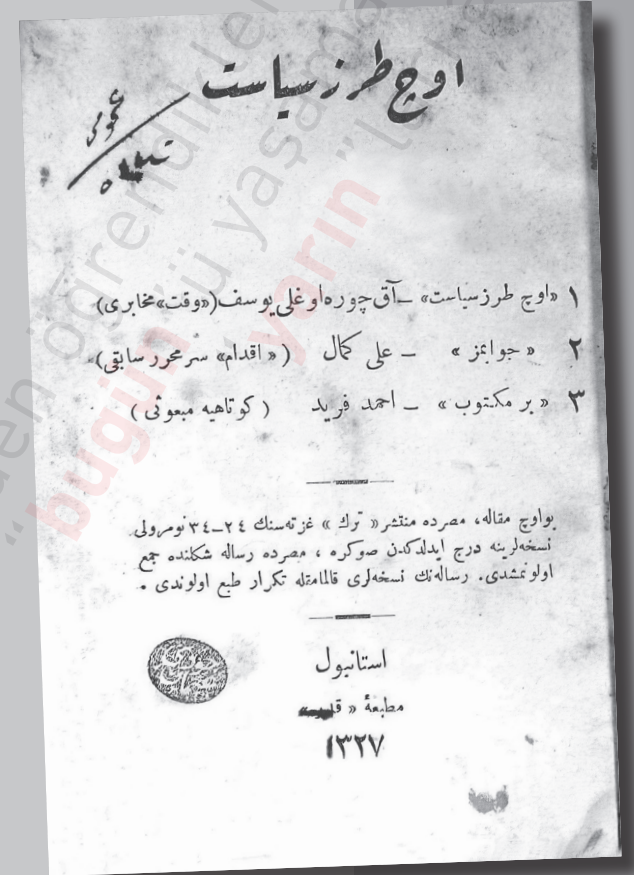 اوچ طرز سیاست
عمومی
١ «اوچ طرز سیاست» ــ آق چوره اوغلی یوسف («وقت» مخابری)
٢ « جوابمز » ــ علی کمال ( « اقدام» سر محرر سابقی)
٣ « بر مکتوب » ــ احمد فرید ( کوتاهیه مبعوثی )
بو اوچ مقاله، مصرده منتشر « ترك » غزته‌سنك ٢٤ــ٣٤ نومرولی
نسخه‌لرینه درج ایدلدکدن صوکره ، مصرده رساله شکلنده جمع
اولونمشدی. رساله‌نك نسخه‌لری قالمامقله تکرار طبع اولوندی .
استانبول
مطبعۀ «
١٣٢٧
“bugün
yarın”